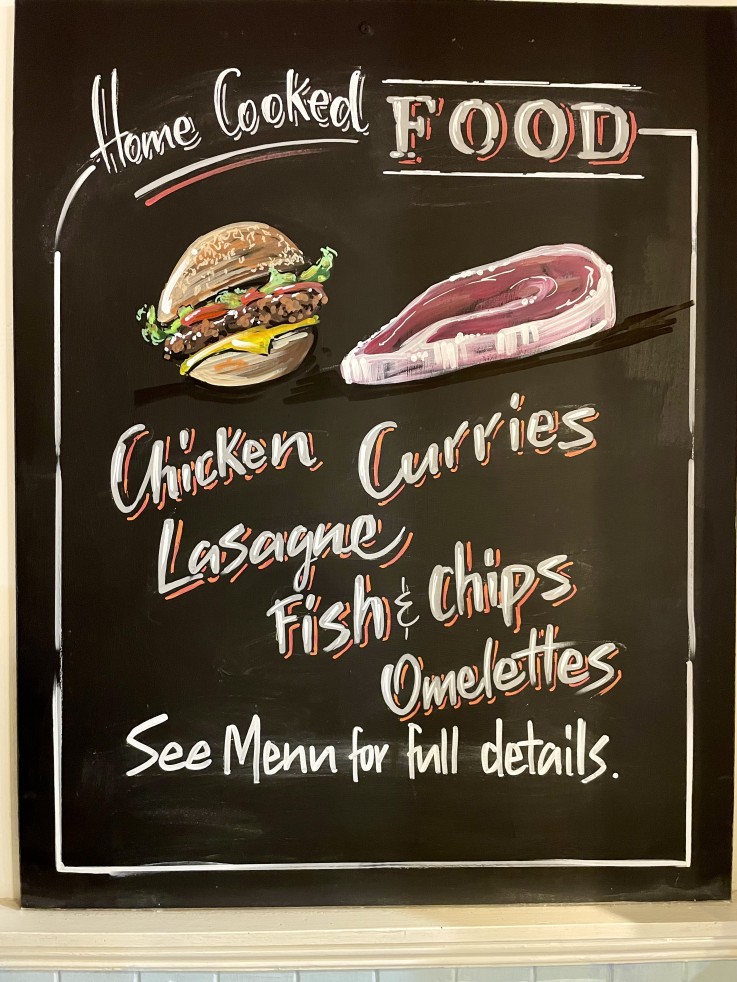 Home Cooked FOOD
Chicken Curries
Lasagne
Fish & Chips
Omelettes
See Menu for full details.